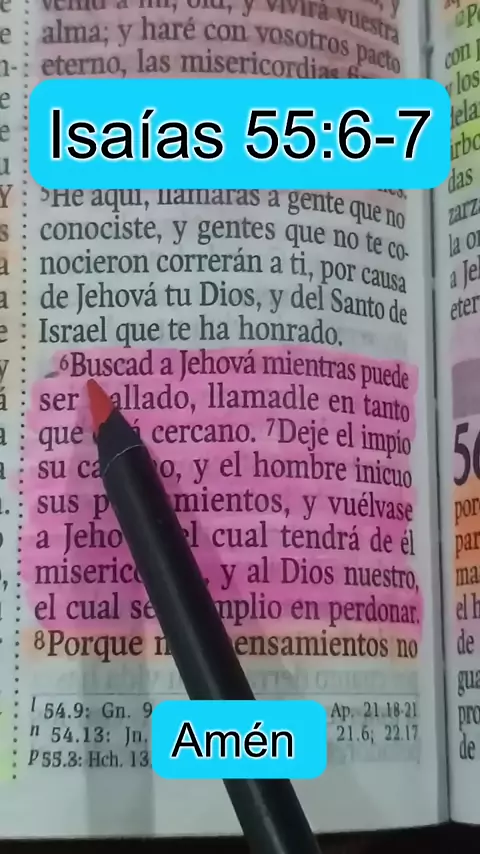 alma; y haré con vosotros pacto
eterno, las misericordias
Isaías 55:6-7
5He aquí, llamarás a gente que no
conociste, y gentes que no te co-
nocieron correrán a ti, por causa
de Jehová tu Dios, y del Santo de
Israel que te ha honrado.
6Buscad a Jehová mientras puede
ser allado, llamadle en tanto
que cercano. 7Deje el impío
su ca o, y el hombre inicuo
sus p mientos, y vuélvase
a Jeho el cual tendrá de él
miseric , y al Dios nuestro,
el cual se mplio en perdonar.
8Porque ensamientos no
l 54.9: Gn. 9 Ap. 21.18-21
n 54.13: Jn. 21.6; 22.17
p 55.3: Hch. 13
Amén
con
los
das
zarz
la o
a Je
eter
56
por
par
ma
el h
de
gua
pro
de